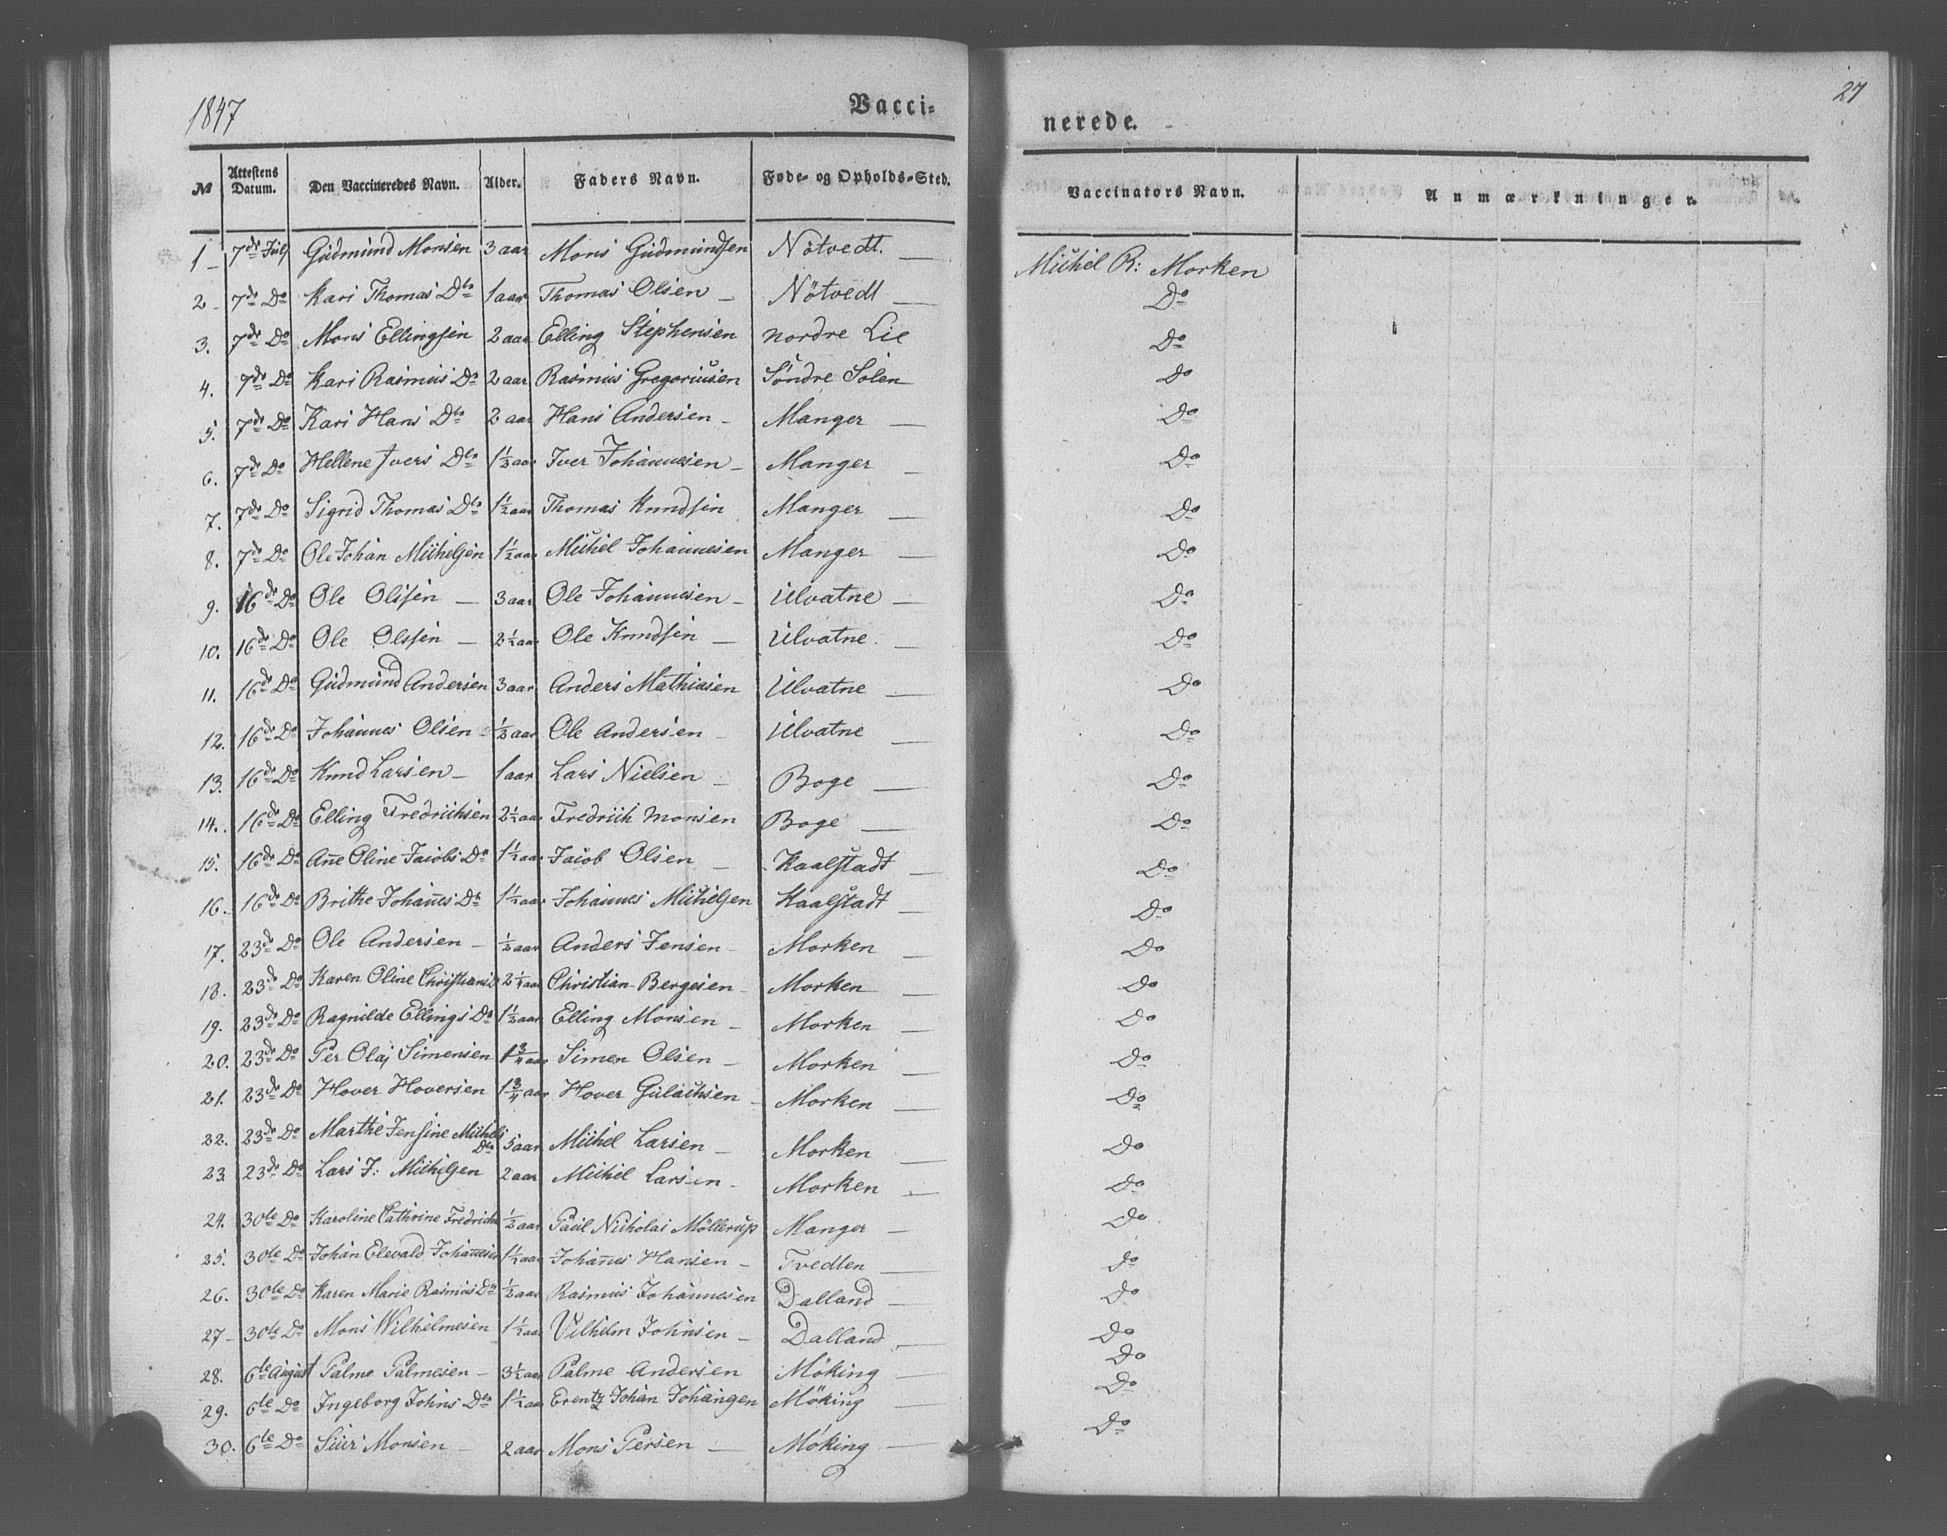 1847 Vacci-
nerede. 27
№ Attestens Datum. Den Vaccineredes Navn. Alder. Faders Navn. Føde- og Opholds-Sted. Vaccinators Navn. Anmærkninger.
1 7de July Gudmund Monsen 3 aar Mons Gudmundsen Nötvedt. Michel R: Morken
2 7de Do Kari Thomas Dtr 1 aar Thomas Olsen Nötvedt Do
3. 7de Do Mons Ellingsen 2 aar Elling Stephensen nordre Lie Do
4. 7de Do Kari Rasmus Dr 2 aar Rasmus Gregoriusen Söndre Solen do
5. 7de Do Kari Hans Dtr 2 aar Hans Andersen Manger Do
6. 7de Do Hellene Ivers Dtr 1½ aar Iver Johannesen Manger Do
7. 7de Do Sigrid Thomas Dtr 1½ aar Thomas Knudsen Manger Do
8. 7de Do Ole Johan Michelsen 1½ aar Michel Johannesen Manger Do
9. 16de Do Ole Olssen 3 aar Ole Johannesen Ulvatne Do
10. 16de Do Ole Olssen 2½ aar Ole Knudsen Ulvatne Do
11. 16de Do Gudmund Andersen 3 aar Anders Mathiasen Ulvatne Do
12. 16de Do Johannes Olsen ½ aar Ole Andersen Ulvatne Do
13. 16de Do Knud Larsen 1 aar Lars Nielsen Boge Do
14. 16de Do Elling Fredrichsen 2½ aar Fredrich Monsen Boge Do
15. 16de Do Añe Oline Jacobs Dr 1½ aar Jacob Olsen Kaalstadt Do
16. 16de Do Brithe Johañes Dr 1½ aar Johannes Michelsen Kaalstadt Do
17. 23de Do Ole Andersen ½ aar Anders Jensen Morken Do
18. 23de Do Karen Oline Christians D 2¼ aar Christian Bergesen Morken Do
19. 23de Do Ragnilde Ellings Dr 1½ aar Elling Monsen Morken Do
20. 23de Do Per Olaj Simensen 1¾ aar Simen Olsen Morken Do
21. 23de Do Hover Hoversen 1¾ aar Hover Gulachsen Morken Do
22. 23de Do Marthe Jensine Michels Dtr 5 aar Michel Larsen Morken Do
23. 23de Do Lars J: Michelsen 2 aar Michel Larsen Morken Do
24. 30te Do Karoline Cathrine Fredricke ½ aar Paul Nicholai Möllerup Manger Do
25. 30te Do Johan Elevald Johañesen 1½ aar Johañes Hansen Tvedten do
26. 30te Do Karen Marie Rasmus Dr ½ aar Rasmus Johannesen Dalland Do
27 30te Do Mons Wilhelmesen 1½ aar Vilhelm Johnsen Dalland Do
28. 6te August Palme Palmesen 3½ aar Palme Andersen Möking Do
29. 6te Do Ingeborg Johns Dtr 1½ aar Erentz Johan Johansen Möking Do
30. 6te Do Siur Monsen 2 aar Mons Persen Möking Do